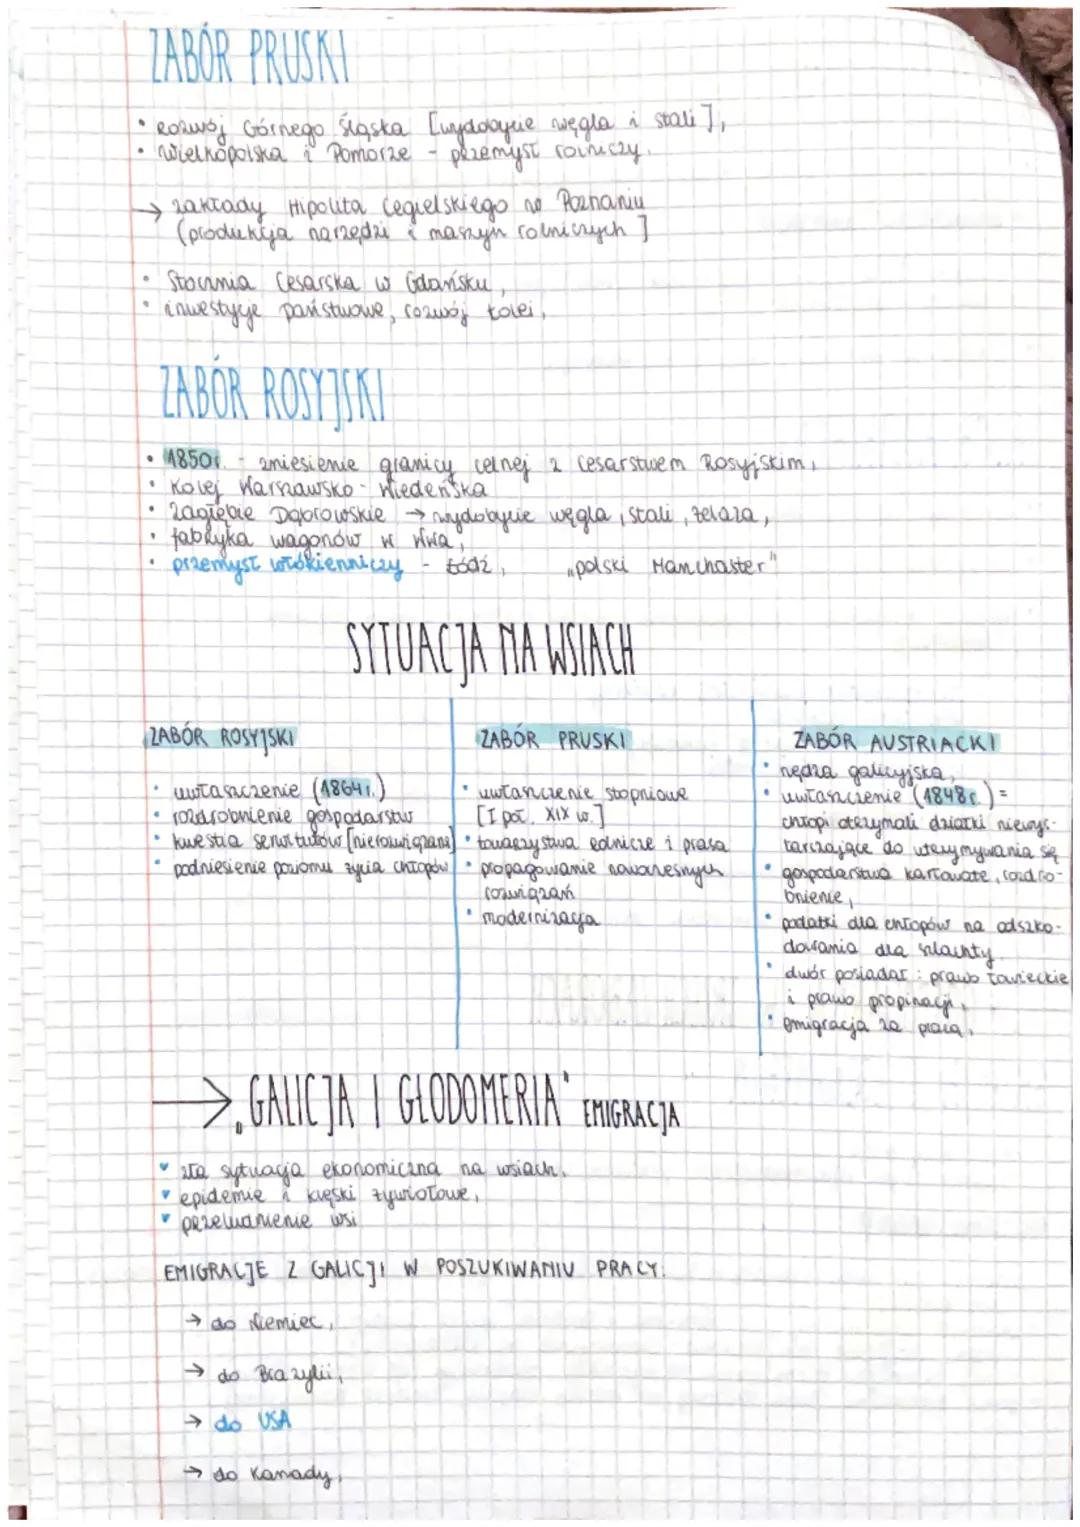 ZABÓR PRUSKI
• rozwój Górnego Śląska [wydobycie węgla i stali],
• Wielkopolska i Pomorze - przemysł rolniczy.
→ zakłady Hipolita Cegielskiego w Poznaniu
(produkcja narzędzi i maszyn rolniczych]
• Stocznia Cesarska w Gdańsku,
• inwestycje państwowe, rozwój kolei,
ZABÓR ROSYJSKI
• 1850r. - zniesienie granicy celnej z Cesarstwem Rosyjskim,
• Kolej Warszawsko - Wiedeńska
• Zagłębie Dąbrowskie → wydobycie węgla, stali, żelaza,
• fabryka wagonów w Wwa,
• przemysł włókienniczy - Łódź, „polski Manchaster"
SYTUACJA NA WSIACH
ZABÓR ROSYJSKI
• uwłaszczenie (1864r.)
• rozdrobnienie gospodarstw
• kwestia serwitutów [nierozwiązane]
• podniesienie poziomu życia chłopów
ZABÓR PRUSKI
• uwłaszczenie stopniowe
[I poł. XIX w.]
• towarzystwa rolnicze i prasa
• propagowanie nowoczesnych
rozwiązań
• modernizacja
ZABÓR AUSTRIACKI
• nędza galicyjska,
• uwłaszczenie (1848r.) =
chłopi otrzymali działki niewys-
tarczające do utrzymywania się
• gospodarstwa karłowate, rozdro-
bnienie,
• podatki dla chłopów na odszko-
dowania dla szlachty.
• dwór posiadał: prawo łowieckie
i prawo propinacji,
• emigracja za pracą,
→ „GALICJA I GŁODOMERIA" EMIGRACJA
▾ zła sytuacja ekonomiczna na wsiach,
▾ epidemie i klęski żywiołowe,
▾ przeludnienie wsi
EMIGRACJE Z GALICJI W POSZUKIWANIU PRACY:
→ do Niemiec,
→ do Brazylii,
→ do USA
→ do Kanady,